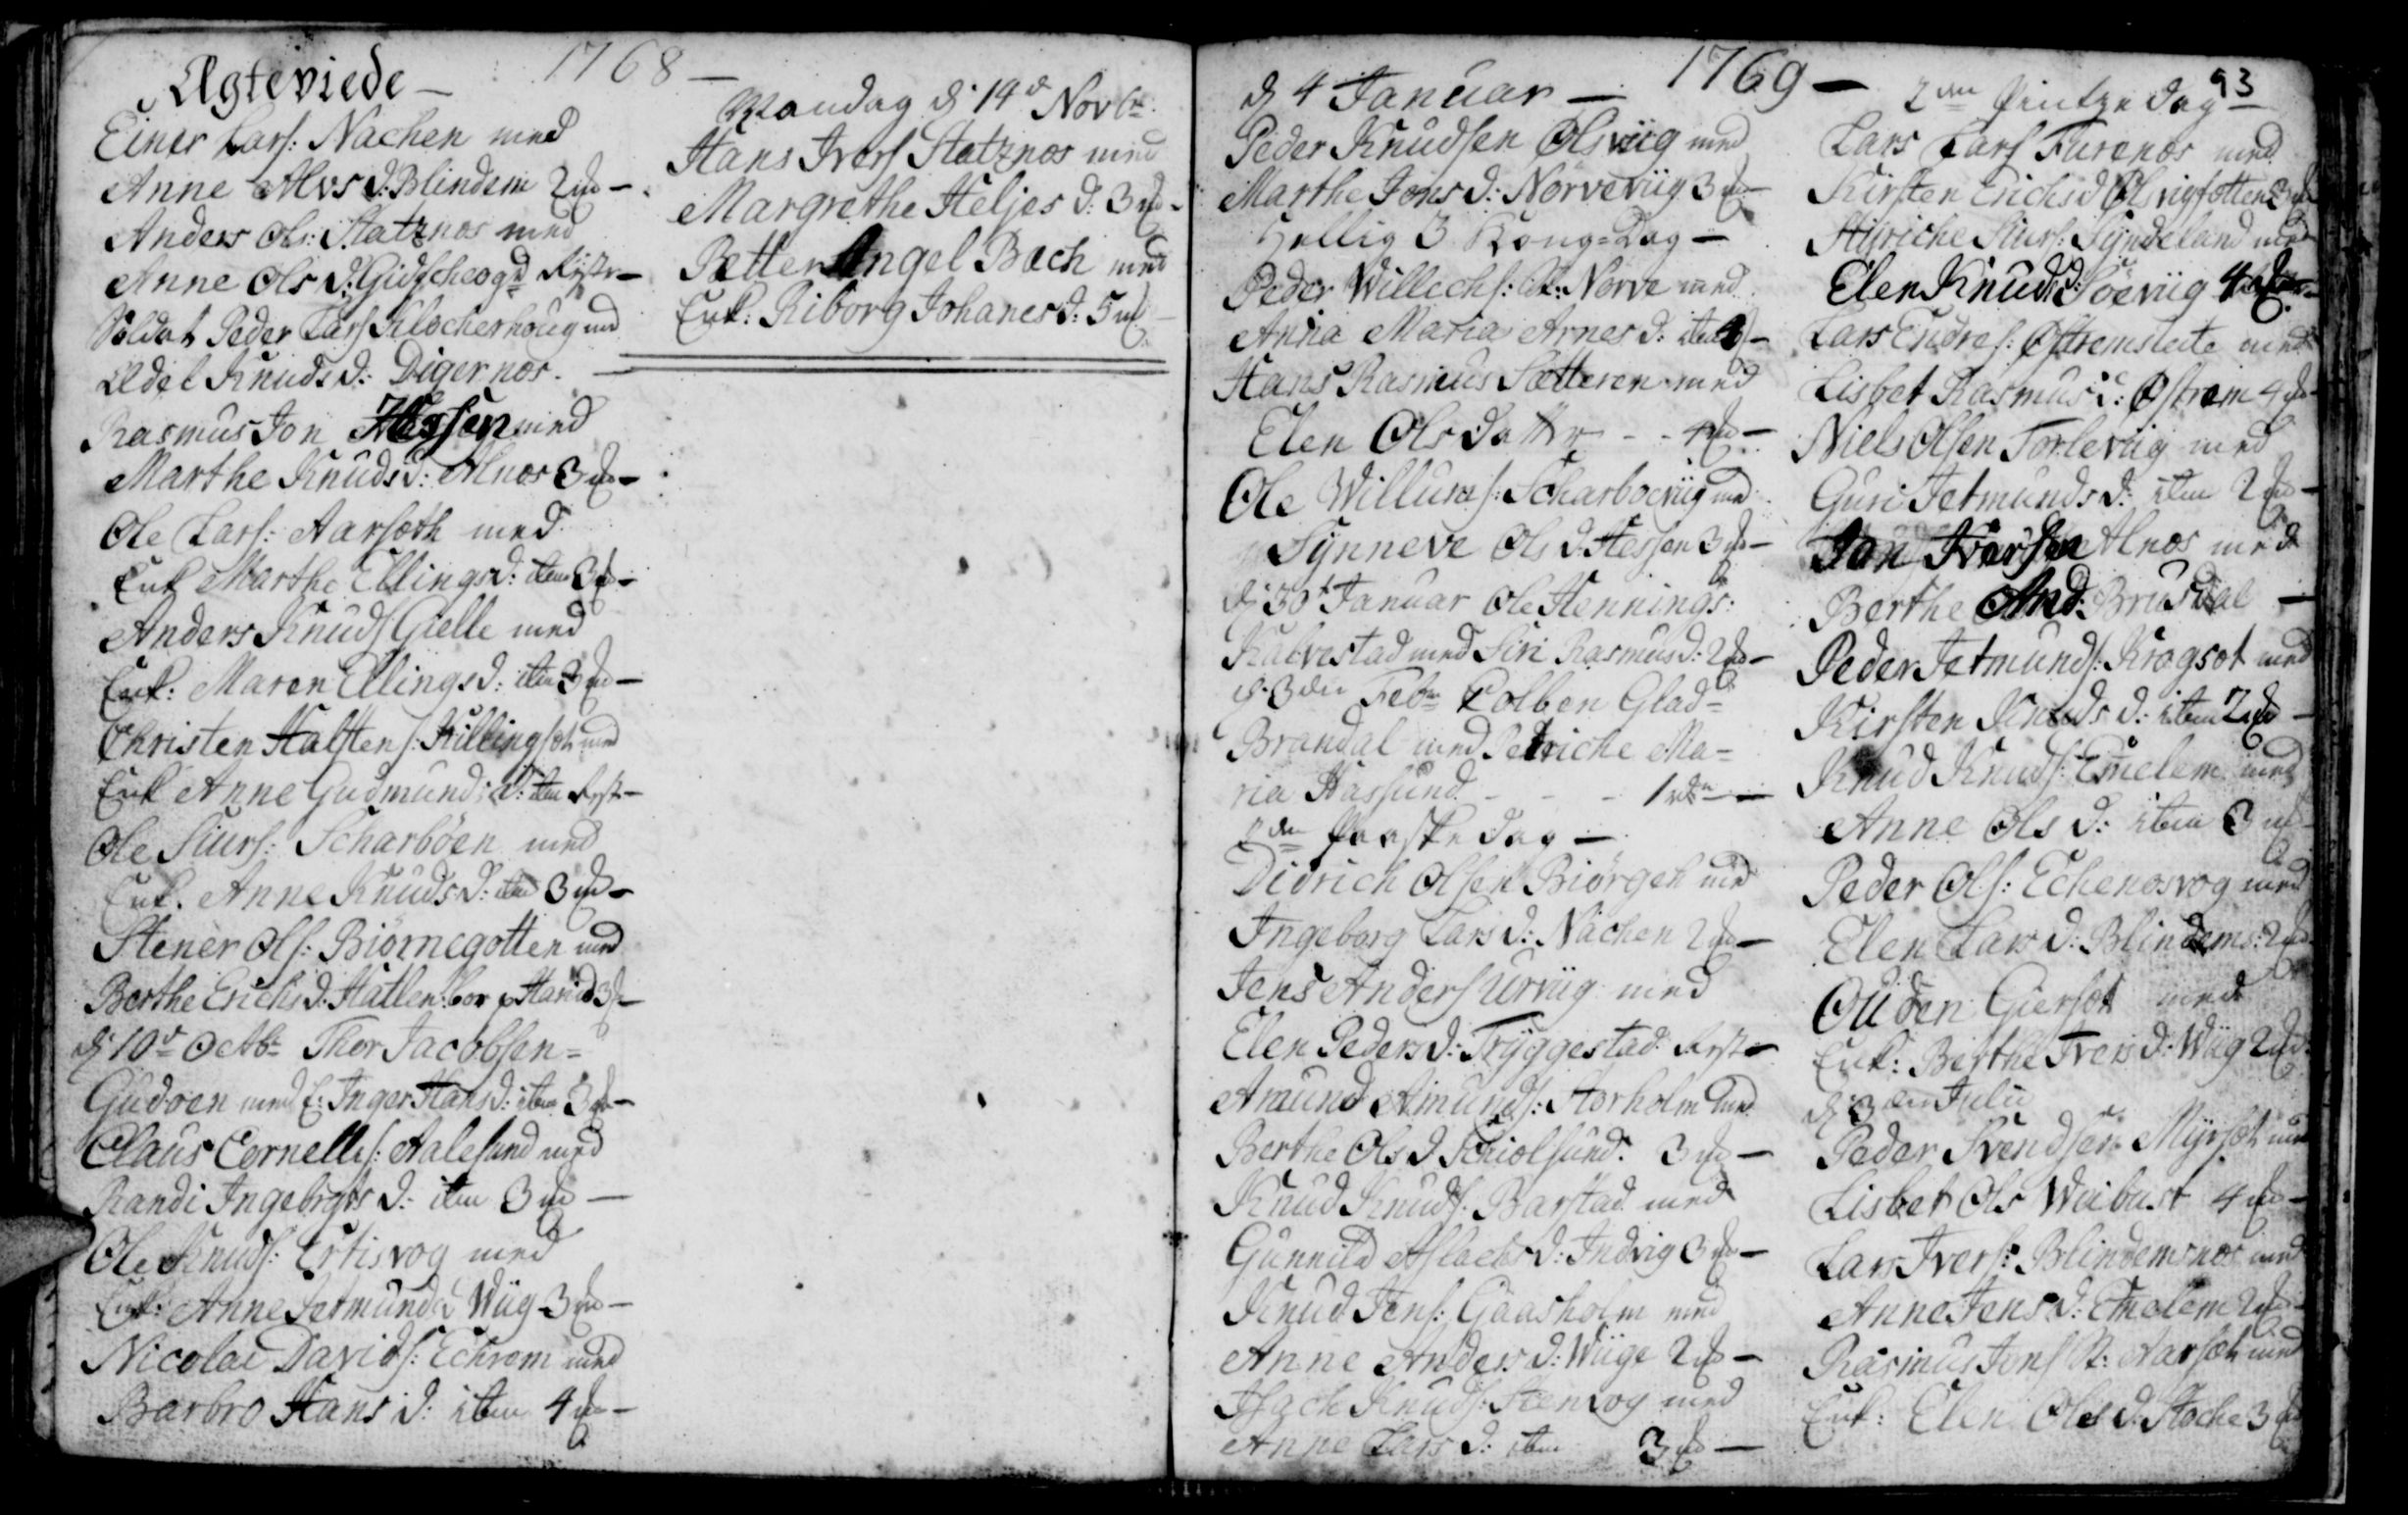 Ægteviede – 1768 –
Einer Lars: Nachen med
Anne Alvs d: Blindem 2 –
Anders Ols: Statznæs med
Anne Ols d: Gidsche og
Soldat Peder Lars Klocherhoug md
Ædel Knuds d: Digernæs.
Rasmus Jon Hessen med
Marthe Knuds d: Alnæs 3 –
Ole Lars: Aarsæth med
Enk Marthe Ellings d: item 3 –
Anders Knuds Gielle med
Enk: Maren Ellings d: item 3 –
Christen Halsten s: Hillingsæt med
Enk Anne Gudmunds d: item
Ole Siurs: Scharbøen med
Enk. Anne Knuds d: item 3 –
Stener Ols: Biørnegotten med
Berthe Erichs d: Hatlen
d: 10de Octbr Thor Jacobsen =
Gudøen med E: Inger Hans d: item 3 –
Claus Cornelli s: Aalesund med
Randi Ingebrgts d: item 3 –
Ole Knuds: Ertisvog med
Enk: Anne Jetmunds d Wiig 3 –
Nicolai Davids: Echrem med
Barbro Hans d: item 4 –
Mandag d: 14de Novbr.
Hans Ivers Statznæs med
Margrethe Heljes d: 3 –
Petter Angel Bech med
Enk: Riborg Johanes d: 5
1769 – 93
d 4 Januar –
Peder Knudsen Olsviig med
Marthe Jons d: Nørveviig 3 –
Hellig 3 Kong = Dag –
Peder Willechs: Nørve med
Anna Maria Arnes d: item 4 –
Hans Rasmus Sætteren med
Elen Olsdatter – – 4 –
Ole Willums: Scharboeviig md
Synneve Ols d: Hessen 3 –
d: 30t Januar Ole Hennings:
Kalvestad med Siri Rasmus d: 2 –
d. 3den Febr Colben Glad =
Brandal med Petriche Ma =
ria Hassund – – – 1 –
2den Paaske dag –
Didrich Olsen Biørgeh md
Ingeborg Lars d: Nachen 2 –
Jens Anders Urviig med
Elen Peders d: Tryggestad
Amund Amunds: Storholm md
Berthe Ols d Schiolsund. 3 –
Knud Knuds: Barstad med
Gunnild Aslachs d: Indvig 3 –
Knud Jens: Gaasholm med
Anne Anders d: Wiige 2 –
Isach Knuds: Stenvog med
Anne Lars d: item 3 –
2den Pintze dag –
Lars Lars Furenæs med
Kirsten Erichs d Olsvigfotten 3
Hyriche Siurs: Syndeland med
Elen Knuds d: Søeviig 4
Lars Endres: Østremsleite med
Lisbet Rasmus d: Østrem 4 –
Niels Olsen Torleviig med
Guri Jetmunds d: item 2 –
Jon Iversen Alnæs med
Berthe And: Brusdal –
Peder Jetmunds: Krogsæt med
Kirsten Knuds d: item 2 –
Knud Knuds: Emelem med
Anne Ols d: item 3
Peder Ols: Echenæsvog med
Elen Lars d: Blindems: 2
Ouden Giersæt med
Enk: Berthe Ivers d: Wiig 2
d: 3den Julii
Peder Svendsen Myrsæt md
Lisbet Ols Weibust 4 –
Lars Ivers: Blindemsnæs med
Anne Jens d: Emelem 2
Rasmus Jons St: Aarsæt med
Enk: Elen Oles d: Stoche 3